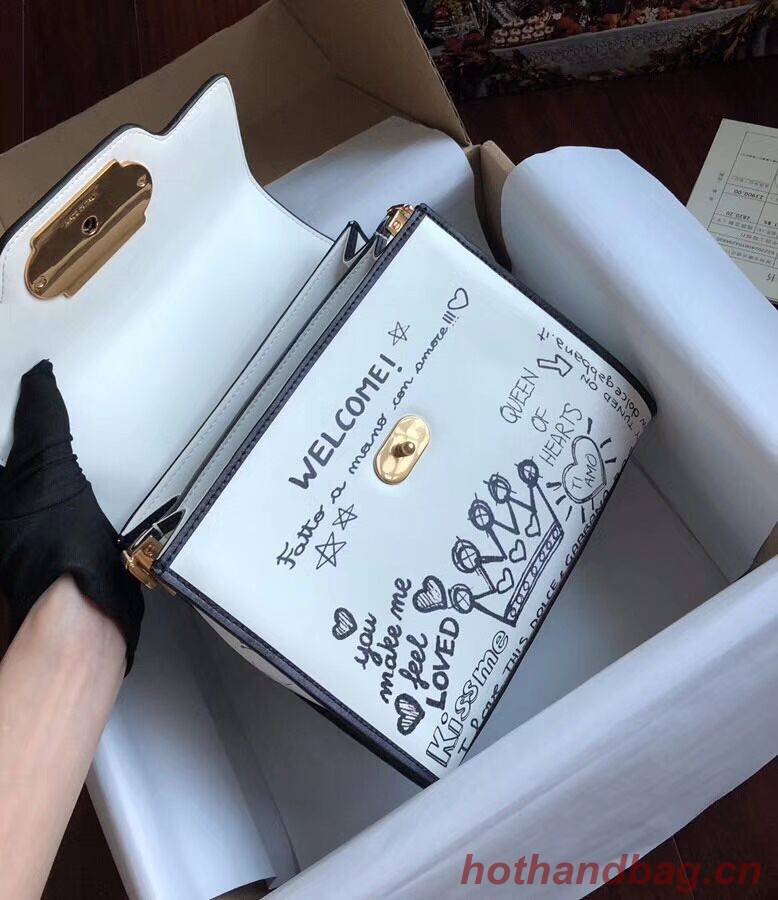 WELCOME!
Fatto a mano con amore!!!
QUEEN
OF
HEARTS
TI AMO
you
make me
feel
LOVED
Kiss me
I love THIS DOLCE & GABBANA
Y TUNED ON
dolcegabbana.it
1820.20
hothandbag.cn